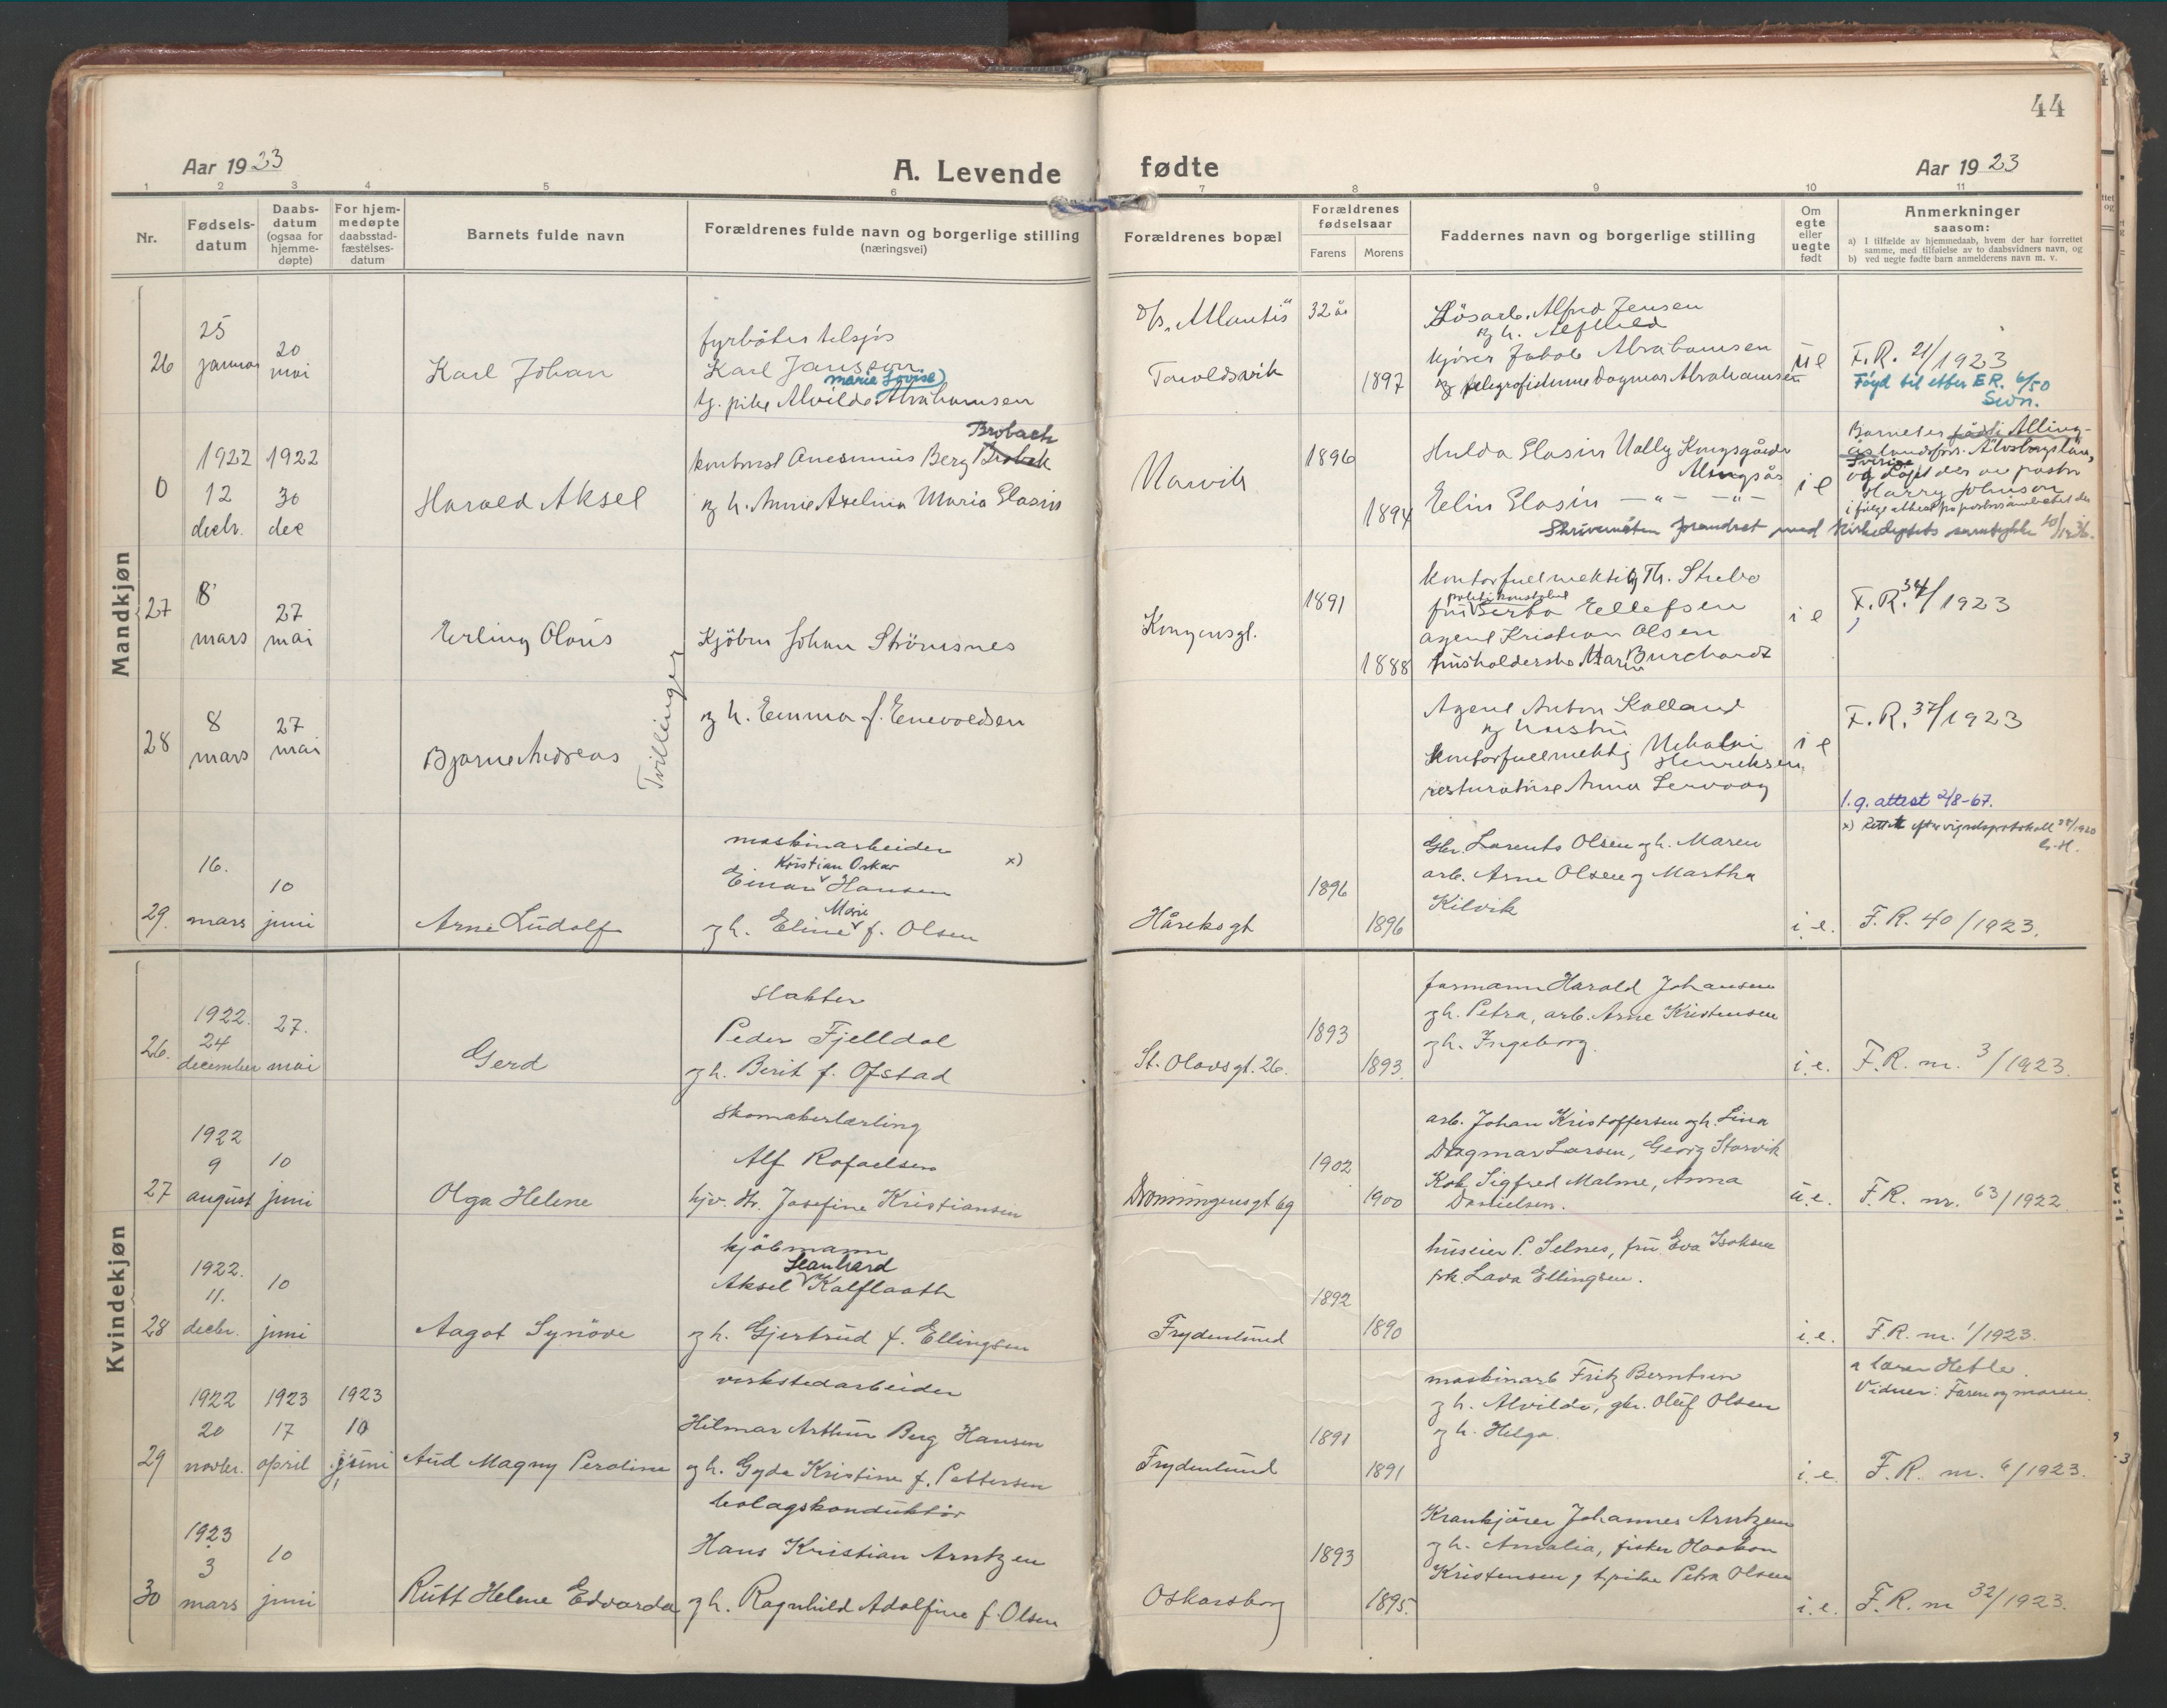 44
Aar 1923
A. Levende fødte
Aar 1923
1 2 3 4 5 6 7 8 9 10 11
Nr.
Fødsels-
datum
Daabs-
datum
(ogsaa for
hjemme-
døpte)
For hjem-
medøpte
daabsstad-
fæstelses-
datum
Barnets fulde navn
Forældrenes fulde navn og borgerlige stilling
(næringsvei)
Forældrenes bopæl
Forældrenes
fødselsaar
Farens Morens
Faddernes navn og borgerlige stilling
Om
egte
eller
uegte
født
Anmerkninger
saasom:
a) I tilfælde av hjemmedaab, hvem der har forrettet
samme, med tilføielse av to daabsvidners navn, og
b) ved uegte fødte barn anmelderens navn m. v.
Mandkjøn
26
25
januar
20
mai
Karl Johan
fyrbøter tilsjøs
Karl Jansson
Marie Lovise)
tj. pike Alvilde Abrahamsen
D/s "Atlantis"
Taraldsvik
32 år
1897
Løsarb. Alfred Jensen
og h. Alfhild
kjører Jakob Abrahamsen
og telegrafistinne Dagmar Abrahamsen
u e
F.R. 21/1923
Føyd til etter E.R. 6/50
0
1922
12
decbr.
1922
30
dec
Harald Aksel
Brobach
kontorist Anesimus Berg Brobak
og h. Anne Axelina Maria Elasin
Narvik
1896
1894
Hulda Elasin Vally Kungsgården
Alingsås
Eelin Elasin — " — — " —
i e
Barnet er født i Alling-
Sverige
og døpt der av pastor
Harry Johnson
Skrivemåten forandret med Kirkedeptets samtykke
27
8
mars
27
mai
Erling Olaus
Kjøbm Johan Strömsnes
Kongensgt.
1891
1888
kontorfuldmektig Th. Strebo
politikonstabel
fru Berta Ellefsen
agent Kristian Olsen
husholderske Marie Burchardt
i e
F.R. 34/1923
Tvillinger
28
8
mars
27
mai
Bjarne Andreas
og h. Emma f. Enevoldsen
Agent Anton Kolland
og hustru
kontorfuldmektig Nikolai
Henriksen,
resturatrise Anna Lervaag
i e
F.R. 37/1923
l.g. attest 2/8-67.
29.
16.
mars
10
juni
Arne Ludolf
maskinarbeider
Kristian Oskar
Einar v Hansen x)
Marie
og h. Eline v f. Olsen
Håreksgt
1896
1896
Gbr. Lorents Olsen og h. Maren
arb. Arne Olsen og Martha
Kilvik
i.e.
x) Rettet efter vigselsprotokoll 28/1920
G.H.
F.R. 40/1923.
Kvindekjøn
26.
1922.
24
december
27.
mai
Gerd
slakter
Peder Fjelldal
og h. Berit f. Ofstad
St. Olavsgt. 26.
1893
1893.
formann Harald Johansen
og h. Petra, arb. Arne Kristensen
og h. Ingeborg.
i.e.
F.R. nr. 3/1923.
27
1922
9
august
10
juni
Olga Helene
skomakerlærling
Alf Rafaelsen
hjv. dtr. Josefine Kristiansen
Dronningensgt 69
1902
1900
arb. Johan Kristoffersen og h. Lina
Dagmar Larsen, Georg Storvik
Kok Sigfred Malme, Anna
Danielsen.
u.e.
F.R. nr. 63/1922
28
1922.
11.
decbr.
10
juni
Aagot Synöve
kjöbmann
Leanhard
Aksel v Kalflaath
og h. Gjertrud f. Ellingsen
Frydenlund
1892
1890
huseier P. Selnes, fru Eva Isaksen
frk. Lava Ellingsen.
i.e.
F.R. nr. 1/1923.
29
1922
20
novbr.
1923
17
april
1923
10
juni
Aud Magny Peroline
verkstedarbeider
Hilmar Arthur Berg Hansen
og h. Gyda Kristine f. Pettersen
Frydenlund
1891
1891
maskinarb Fritz Berntsen
og h. Alvilda, gbr. Oluf Olsen
og h. Helga.
i.e.
Vidner: Faren og moren.
F.R. nr. 6/1923.
30
1923
3
mars
10
juni
Rutt Helene Edvarda
bolagskonduktör
Hans Kristian Arntzen
og h. Ragnhild Adolfine f. Olsen
Oskarsborg
1893
1895.
Krankjörer Johannes Arntzen
og h. Amalia, fisker Haakon
Kristensen, tj.pike Petra Olsen
i.e.
F.R. nr 32/1923.